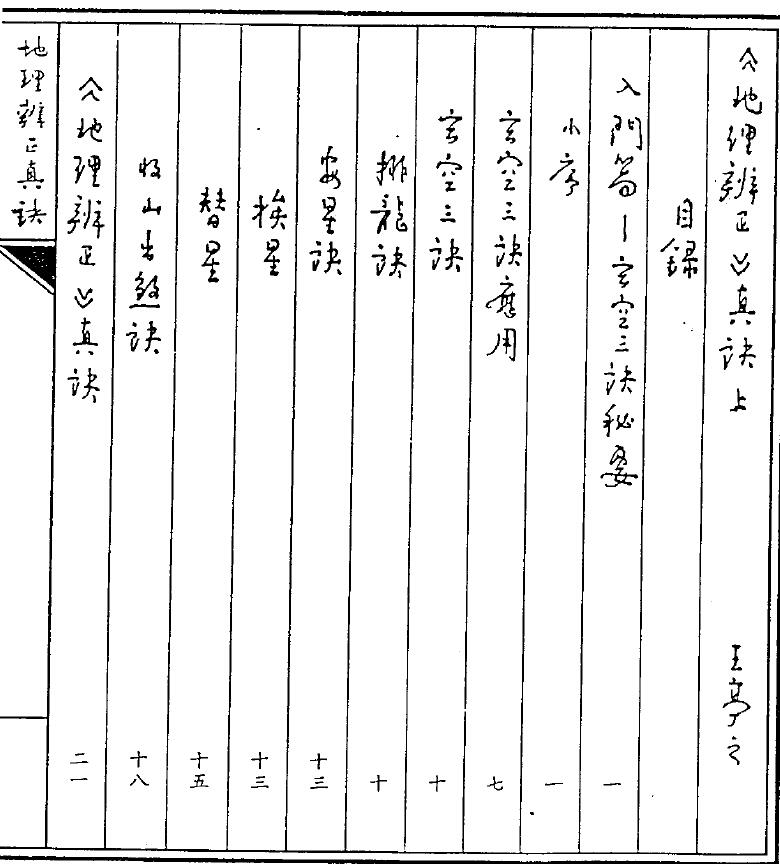 《地理辨正》真訣上 王亭之
目錄
入門篇—玄空三訣秘要 一
小序 一
玄空三訣應用 七
玄空三訣 十
排龍訣 十
安星訣 十三
挨星 十三
替星 十五
收山出煞訣 十八
《地理辨正》真訣 二一
地理辨正真訣